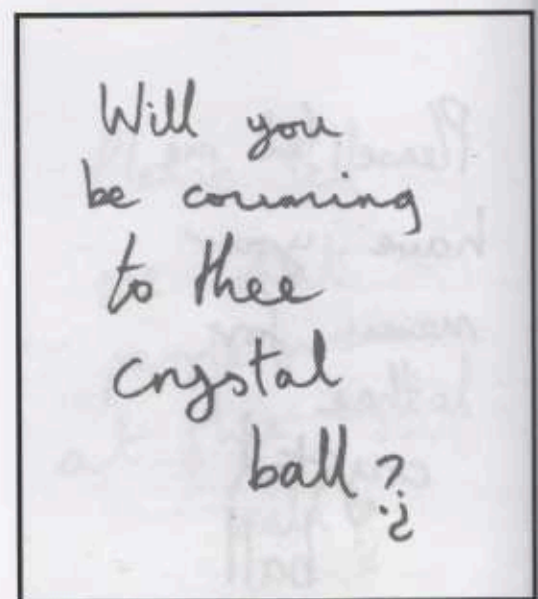 Will you
be couming
to thee
crystal
ball?